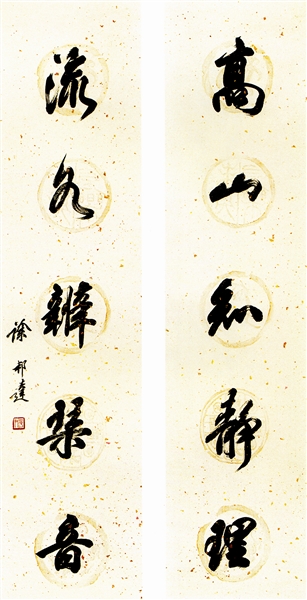 高山知静理
流水辨琴音
徐邦達